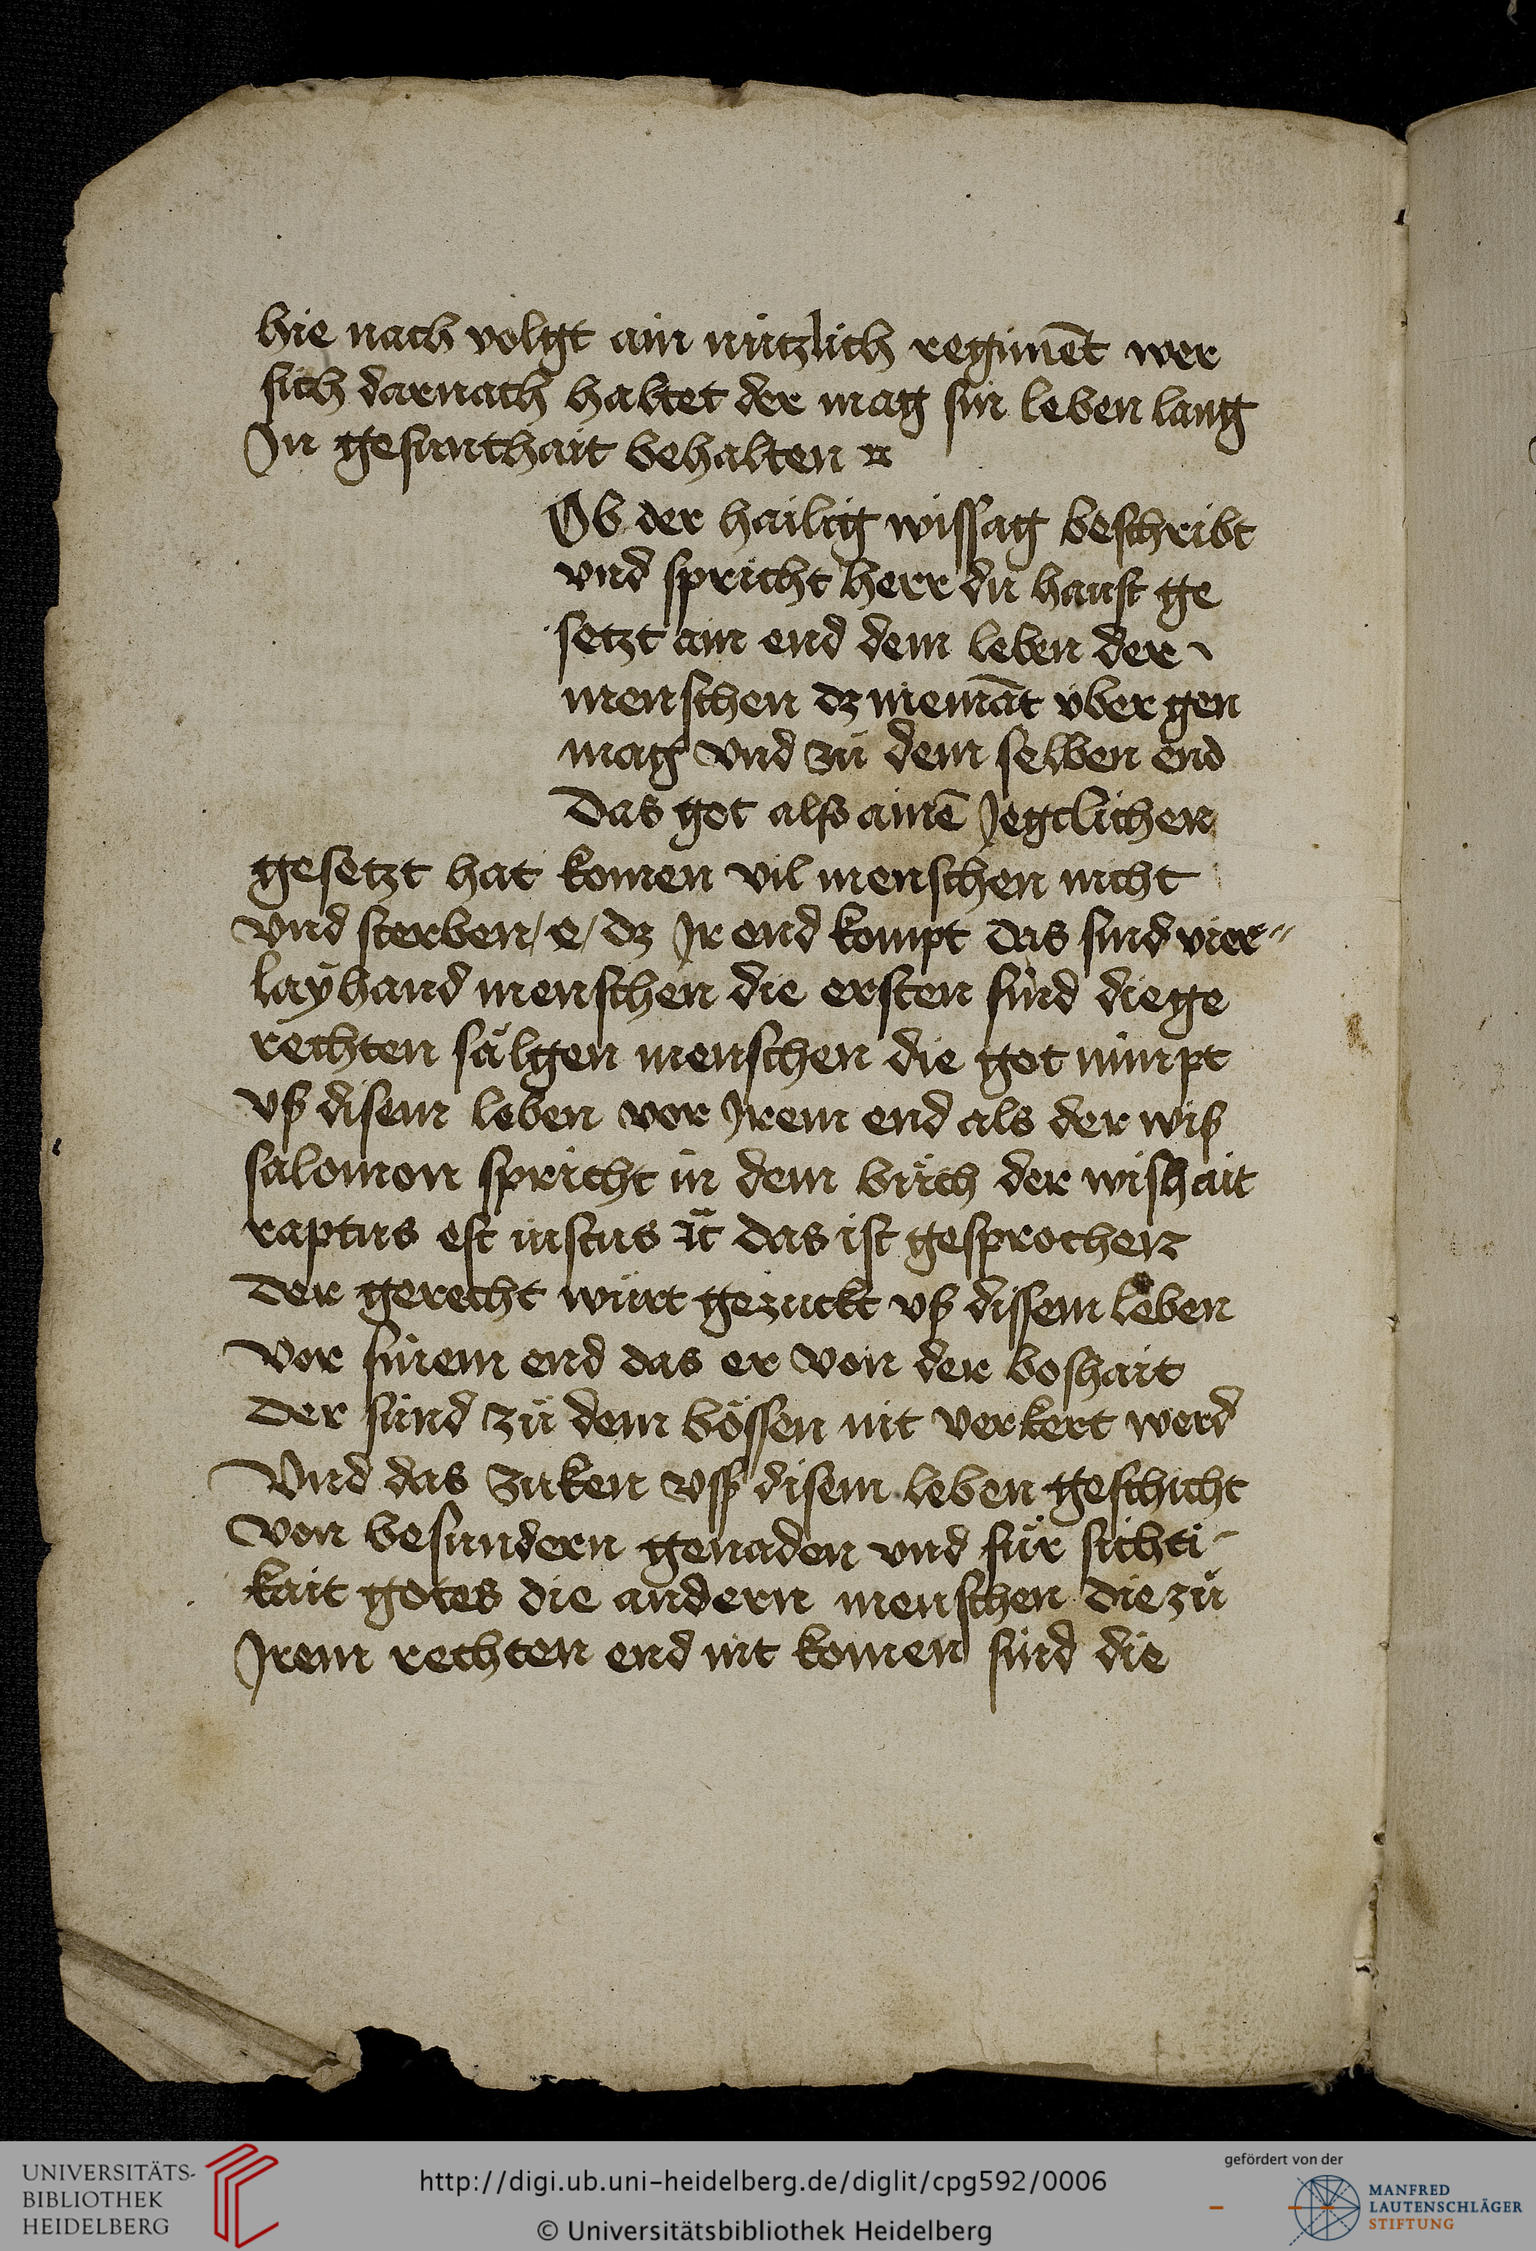 hie nach volgt ain nützlich regimēt wer
sich darnach haltet der mag sin leben lang
Jn gesunthait behalten
Ob der hailig wissag beschribt
vnd spricht herr du haust ge
setzt ain end dem leben der
menschen dz niemāt über gen
mag vnd zů dem selben end
das got also ainē Jegclichen
gesetzt hat komen vil menschen nicht
vnd sterben / e / dz Jr end kompt das sind vier〃
layhand menschen die ersten sind die ge
rechten sälgen menschen die got nimpt
vß disem leben vor Jrem end als der wiß
salomon spricht in dem bůch der wishait
raptus est iustus ⁊c̈ das ist gesprochen
der gerecht würt gezuckt vß dissem leben
vor sinem end das er von der boshait
der sünd zů dem bössen nit verkert werd
Vnd das zuken vsß disem leben geschicht
von besundern genaden vnd für sichti-
kait gotes die andern menschen die zů
Jrem rechten end nit komen sind die
UNIVERSITÄTS-
BIBLIOTHEK
HEIDELBERG
http://digi.ub.uni-heidelberg.de/diglit/cpg592/0006
© Universitätsbibliothek Heidelberg
gefördert von der
MANFRED
LAUTENSCHLÄGER
STIFTUNG